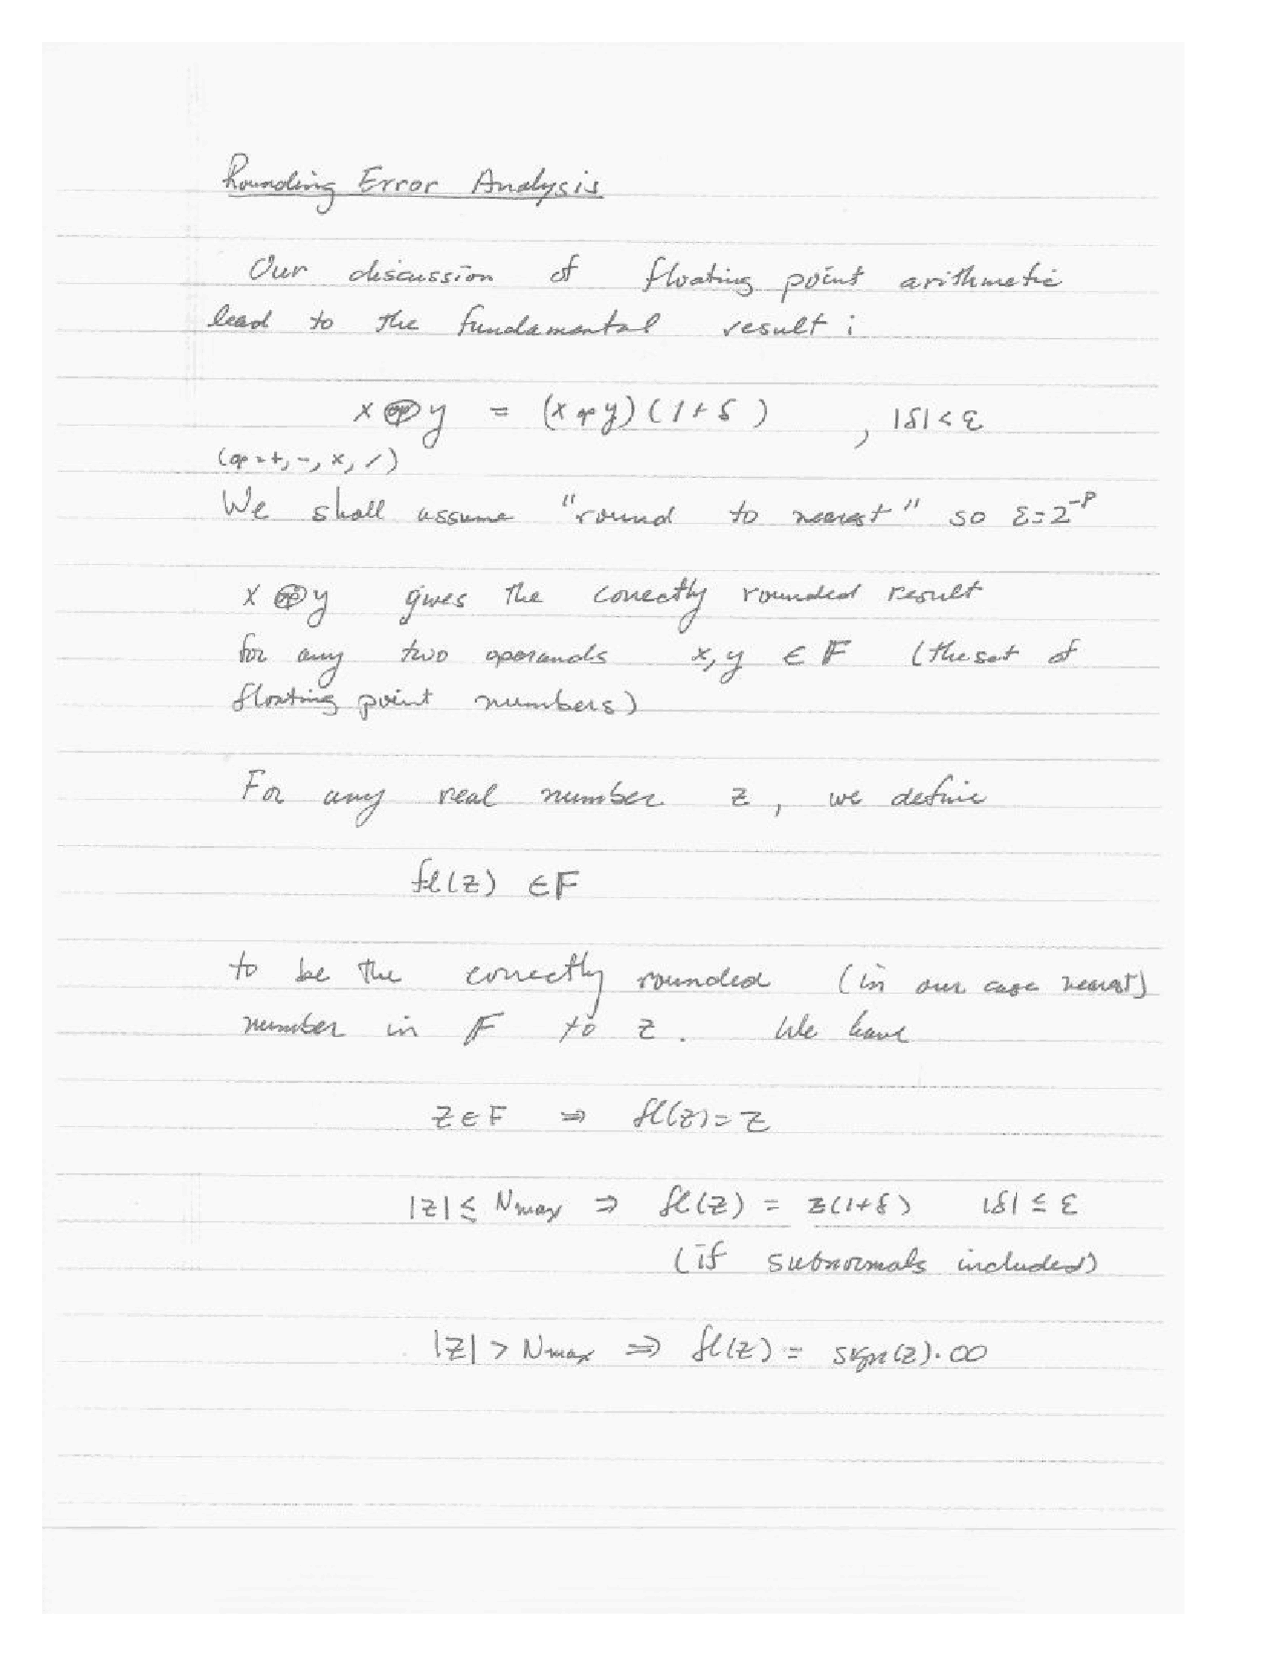 Rounding Error Analysis
Our discussion of floating point arithmetic
lead to the fundamental result:
x ⊕ y = (x op y)(1+δ) , |δ|<ε
(op=+,-,x,/)
We shall assume "round to nearest" so ε=2^-p
x op y gives the correctly rounded result
for any two operands x, y ∈ F (the set of
floating point numbers)
For any real number z, we define
fl(z) ∈ F
to be the correctly rounded (in our case nearest)
number in F to z. We have
z ∈ F ⇒ fl(z)=z
|z| ≤ Nmax ⇒ fl(z) = z(1+δ) |δ| ≤ ε
(if subnormals included)
|z| > Nmax ⇒ fl(z) = sign(z).∞